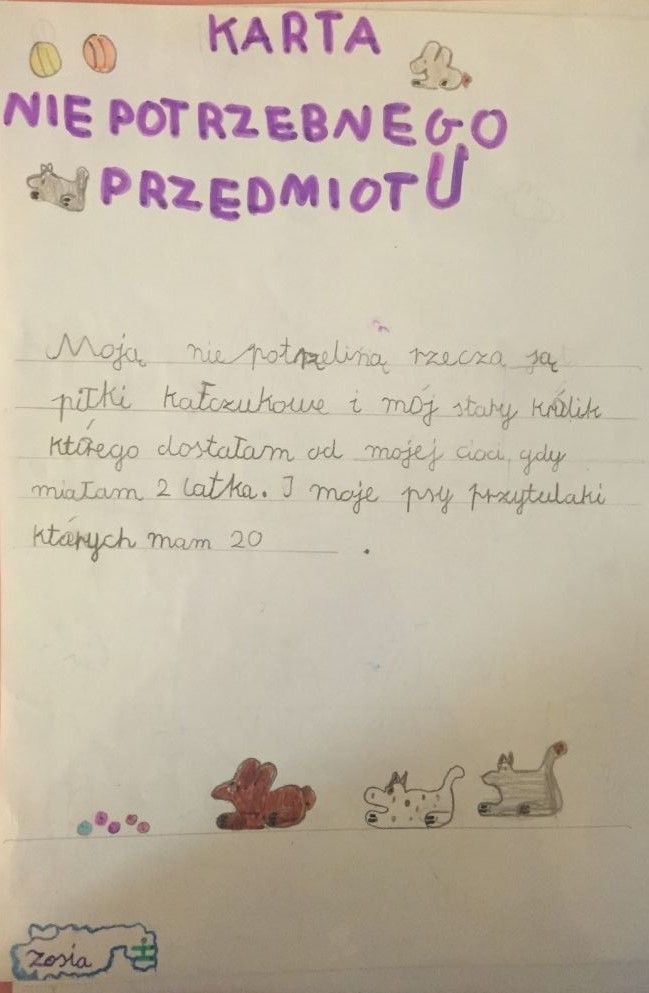 KARTA
NIE POTRZEBNEGO
PRZEDMIOTU
Moją nie potrzebną rzeczą są
piłki kałczukowe i mój stary królik
którego dostałam od mojej cioci, gdy
miałam 2 latka. I moje psy przytulaki
których mam 20 .
Zosia